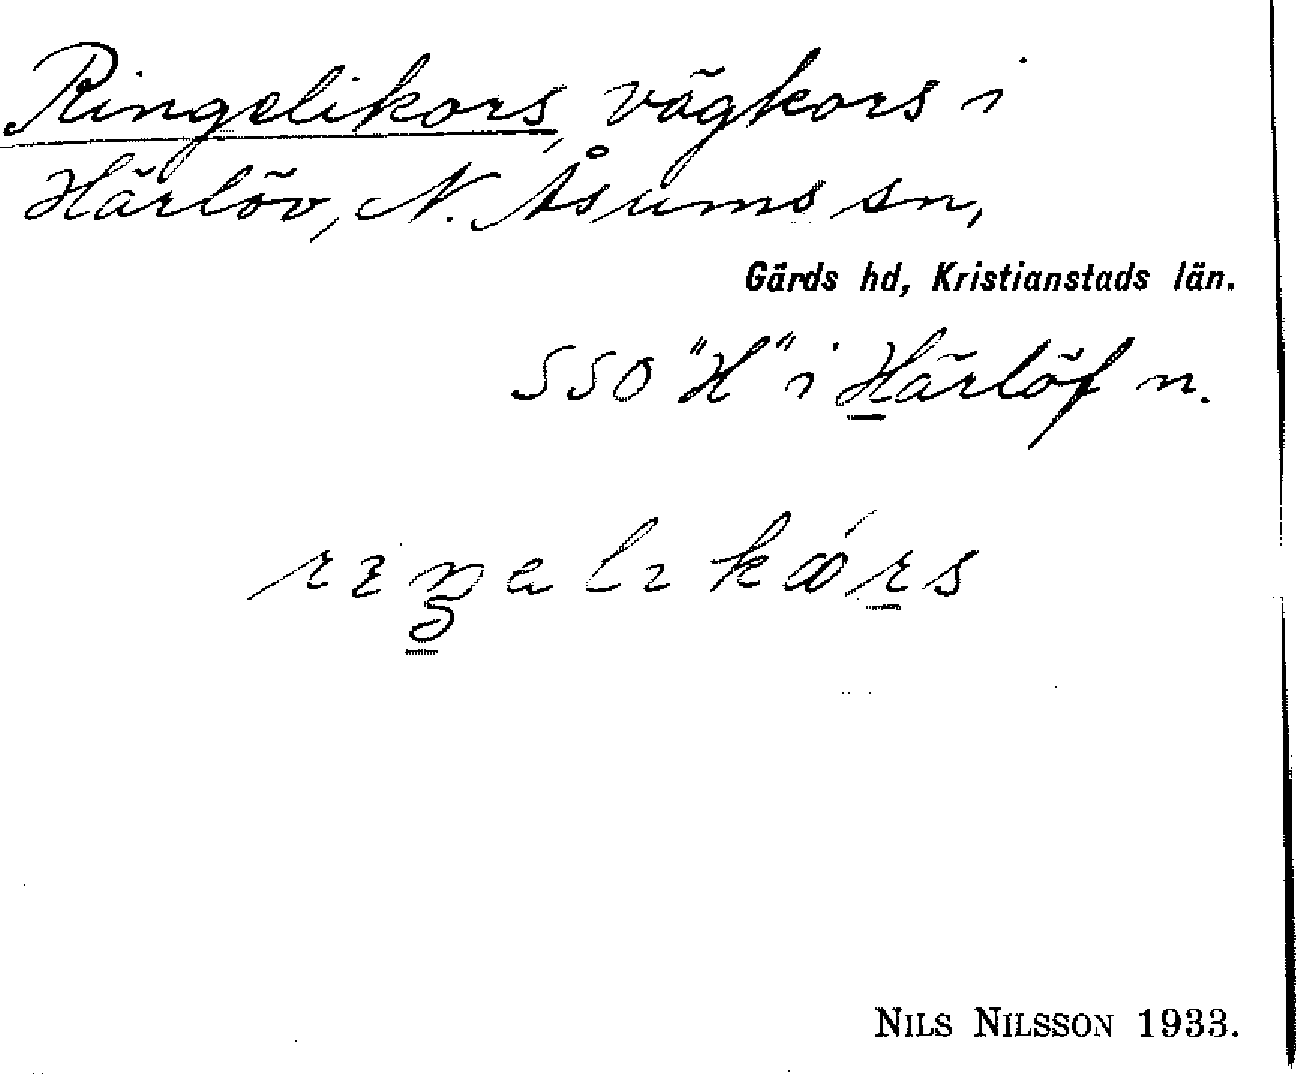 Ringelikors, vägkors i
Härlöv, N. Åsums sn,
Gärds hd, Kristianstads län.
SSO "H" i Härlöf n.
NILS NILSSON 1933.